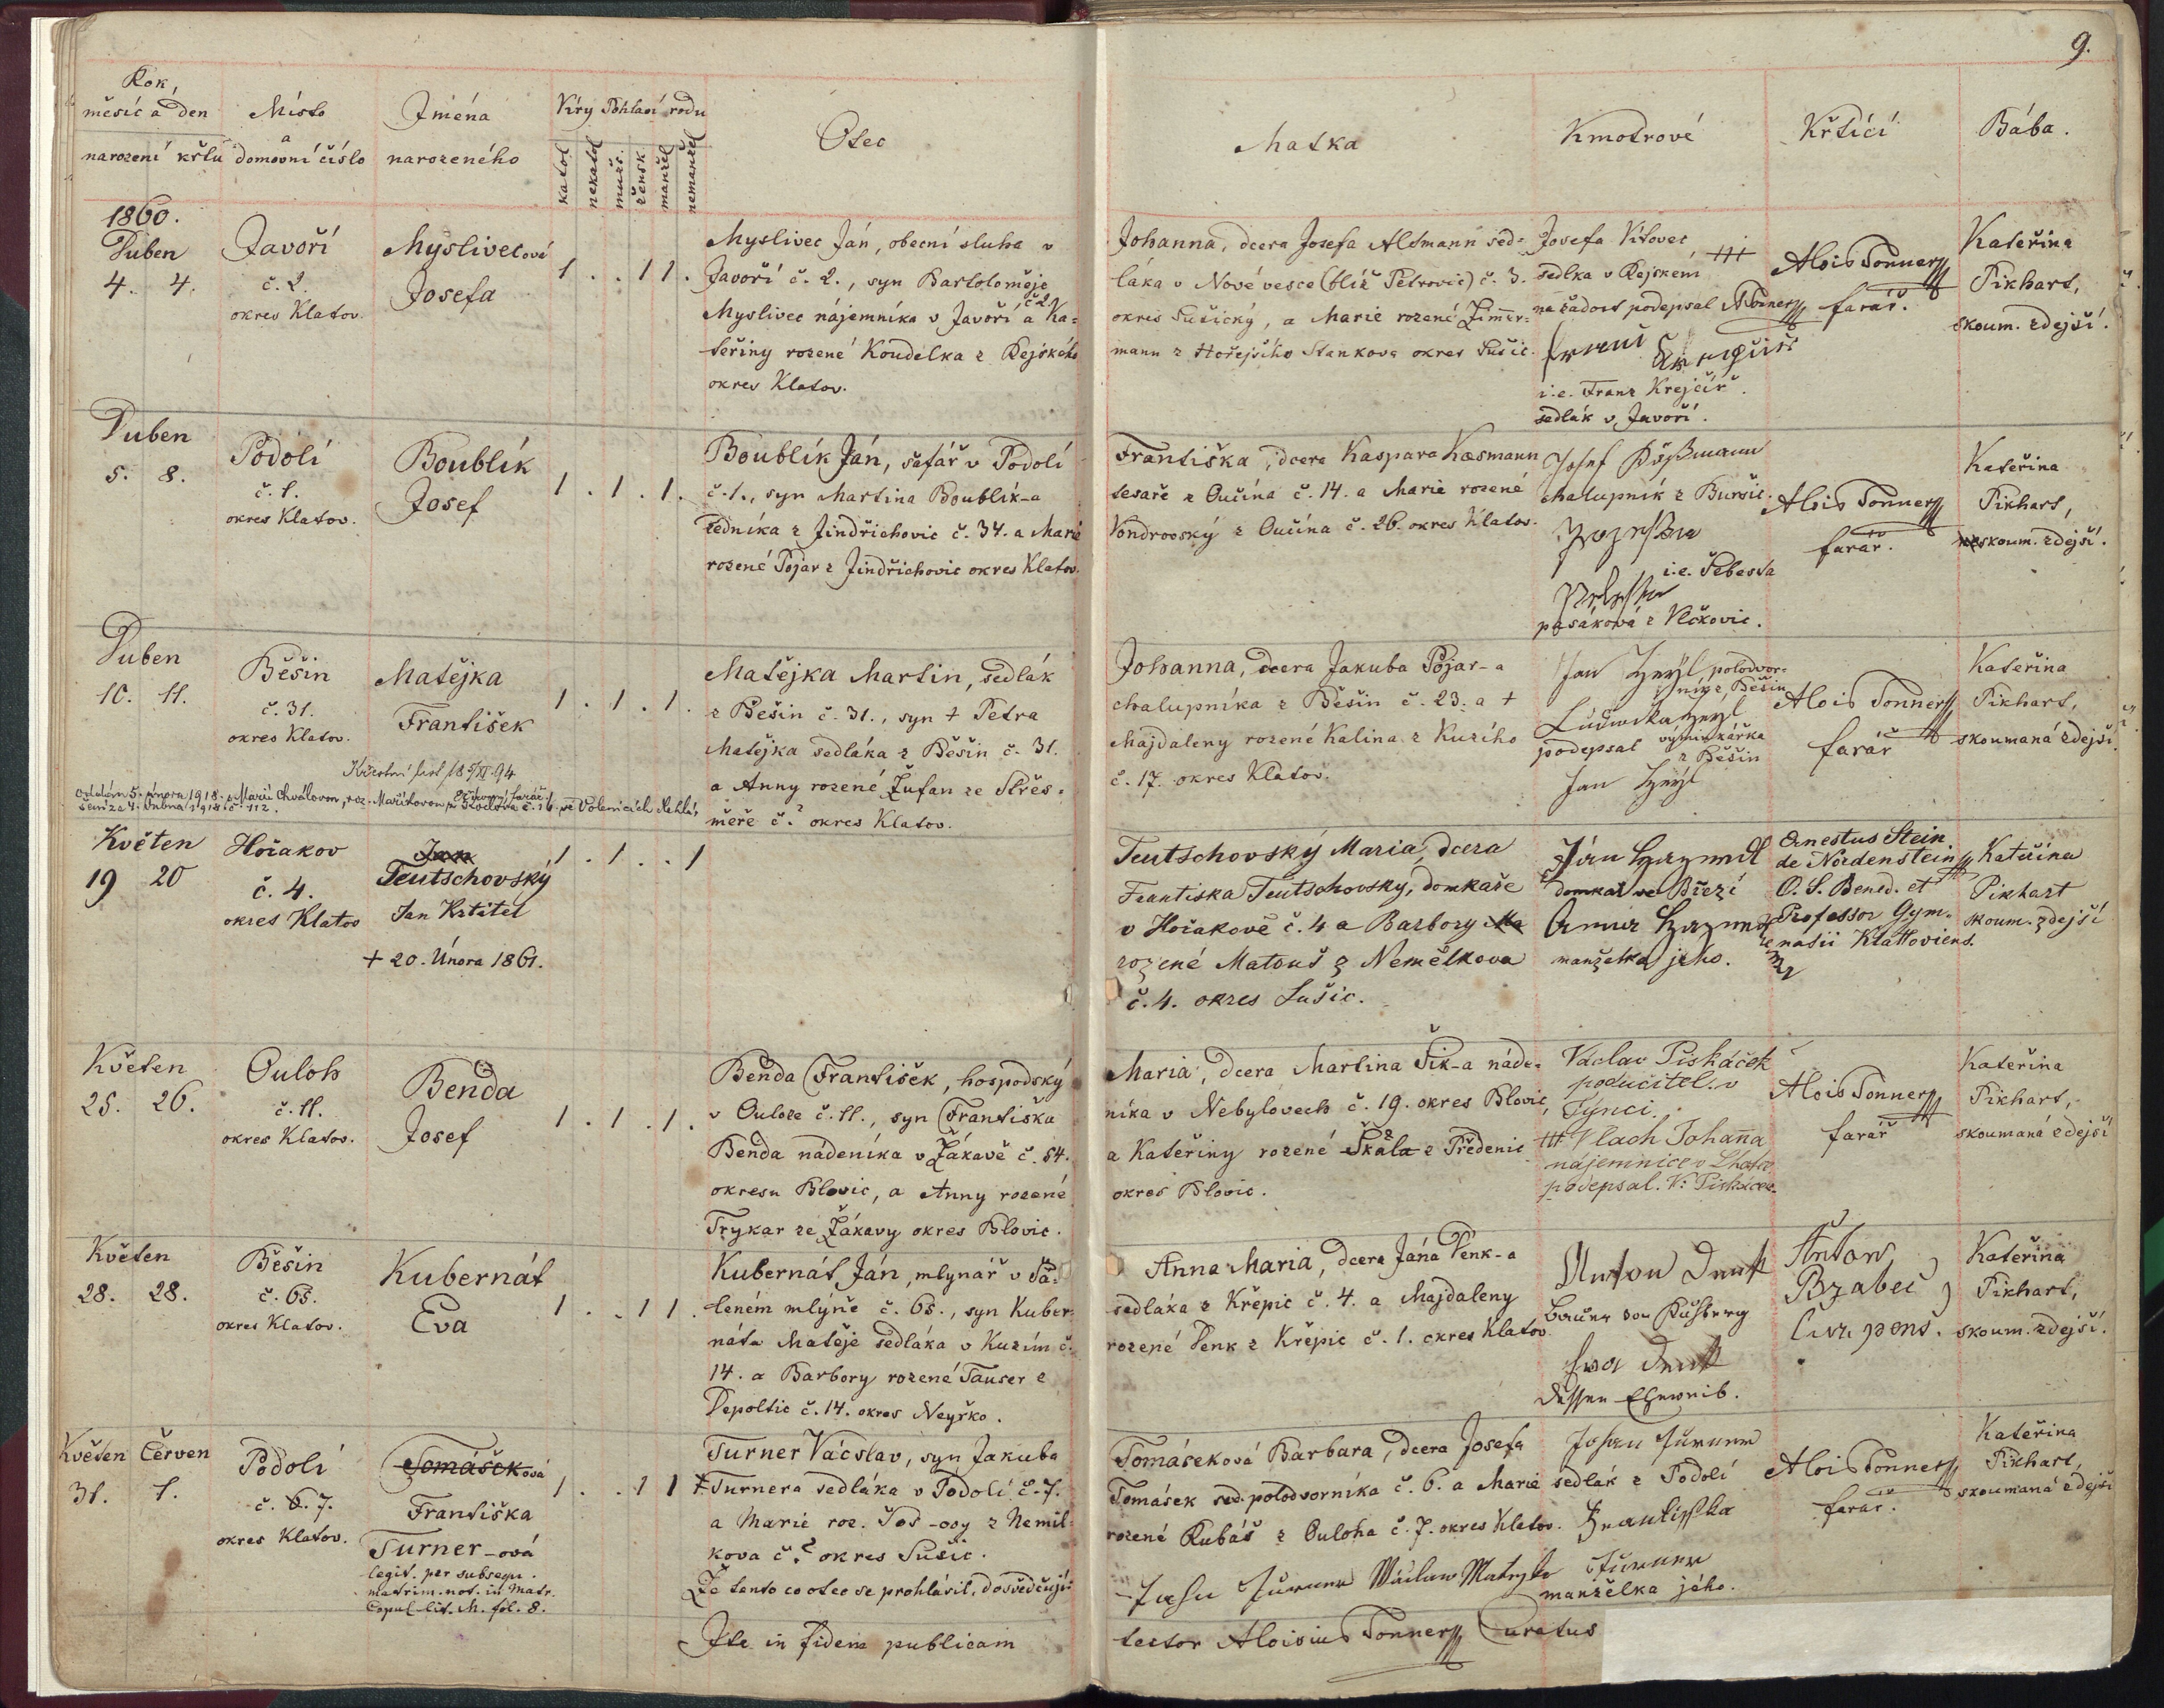 9.
Rok,
měsíc a den
narození křtu
Místo
a
domovní číslo
Jména
narozeného
Víry Pohlaví rodu
katol
nekatol
mužs.
žensk
manžel
nemanžel
Otec
Matka
Kmotrové
Křtící
Bába.
1860.
Duben
4. 4.
Javoří
č. 2.
okres Klatov.
Myslivecová
Josefa
1 . . 1 1 .
Myslivec Ján, obecní sluha v
Javoří č. 2., syn Bartoloměje
Myslivec nájemníka v Javoří č 2 a Ka-
teřiny rozené Koudelka z Kejského
okres Klatov.
Johanna, dcera Josefa Altmann sed-
láka v Nové vesce (blíž Petrovic) č. 3.
okres Sušický, a Marie rozené Zimer-
mann z Hořejšího Stankova okres Sušic.
Josefa Vítovec, +++
sedlka v Kejském
na žádost podepsal ATonner
i.e. Franz Krejčíř
sedlák v Javoří.
Alois Tonner
farář.
Kateřina
Pikhart,
skoum. zdejší.
Duben
5. 8.
Podolí
č. 1.
okres Klatov.
Boublík
Josef
1 . 1 . 1 .
Boublík Ján, šafář v Podolí
č. 1., syn Martina Boublík-a
zedníka z Jindřichovic č. 34. a Marie
rozené Pojar z Jindřichovic okres Klatov.
Františka, dcera Kaspara Kæsmann
tesaře z Oučína č. 14. a Marie rozené
Vondrovský z Oučína č. 26. okres Klatov.
Josef Käßmann
chalupník z Buršic.
i.e. Šebesta
pasáková z Vlčkovic.
Alois Tonner
farář.
Kateřina
Pikhart,
skoum. zdejší.
Duben
10. 11.
Běšin
č. 31.
okres Klatov.
Matějka
František
Křestní list 18 5/XI. 94
Oddán 5. února 1918. s Marií Chválovou, roz. Maříkovou
1 . 1 . 1 .
Matějka Martin, sedlák
z Běšin č. 31., syn + Petra
Matějka sedláka z Běšin č. 31.
a Anny rozené Žufan ze Střes-
měře č. ? okres Klatov.
Johanna, dcera Jakuba Pojar-a
chalupníka z Běšin č. 23. a +
Majdaleny rozené Kalina z Kuzího
č. 17. okres Klatov.
polodvor-
ník z Běšin
podepsal
z Běšin
Alois Tonner
farář
Kateřina
Pikhart,
skoumaná zdejší
Květen
19 20
Hořakov
č. 4.
okres Klatov
Jan
Teutschovský
Jan Křtitel
+ 20. Února 1861.
1 . 1 . . 1
Teutschovský Maria, dcera
Frantiska Teutschovský, domkaře
v Hořakově č. 4 a Barbory Ma
rozené Matouš z Nemělkova
č. 4. okres Sušic.
domkař ve Březí
manželka jeho.
Ernestus Stein
de Nordenstein
O. S. Bened. et
Professor Gym-
nasii Klattoviens.
Kateřina
Pikhart
skoum. zdejší
Květen
25. 26.
Ouloh
č. 11.
okres Klatov.
Benda
Josef
1 . 1 . 1 .
Benda František, hospodský
v Ouloze č. 11., syn Františka
Benda nádeníka v Žákavě č. 54.
okresu Blovic, a Anny rozené
Trykar ze Žákavy okres Blovic.
Maria, dcera Martina Šik-a náde-
níka v Nebylovech č. 19. okres Blovic,
a Kateřiny rozené Škala z Předenic
okres Blovic.
Václav Piskáček
podučitel. v
Týnci.
+++ Vlach Johanna
nájemnice v Lhotce
podepsal. V. Piskáček
Alois Tonner
farář
Kateřina
Pikhart,
skoumaná zdejší
Květen
28. 28.
Běšin
č. 65.
okres Klatov.
Kubernát
Eva
1 . . 1 1 .
Kubernát Ján, mlynář v Pá-
leném mlýně č. 65., syn Kuber-
náta Matěje sedláka v Kuzím č.
14. a Barbory rozené Tauser z
Depoltic č. 14. okres Neyrsko.
Anna Maria, dcera Jána Denk-a
sedláka z Křepic č. 4. a Majdaleny
rozené Denk z Křepic č. 1. okres Klatov.
Anton Denk
Eva Denk
dessen Eheweib.
Anton
Brabec,
Cur. pens.
Kateřina
Pikhart,
skoum. zdejší.
Květen Červen
31. 1.
Podolí
č. 6. 7.
okres Klatov.
Tomášeková
Františka
Turner-ová
legit. per subsequ.
matrim. not. in Matr.
Copul. lit. M. fol. 8.
1 . . 1 1
Turner Václav, syn Jakuba
Turnera sedláka v Podolí č. 7.
a Marie roz. Toš-ovy z Nemil-
kova č. ? okres Sušic.
Že tento co otec se prohlásil, dosvědčují:
Tomáseková Barbara, dcera Josefa
Tomásek sed. polodvorníka č. 6. a Marie
rozené Kubáš z Ouloha č. 7. okres Klatov.
Johan Turner
sedlák z Podolí
Frantisska
Turner
manželka jeho.
Alois Tonner
farář.
Kateřina
Pikhart,
skoumaná zdejší
Ita in fidem publicam
testor Aloisius Tonner Curatus